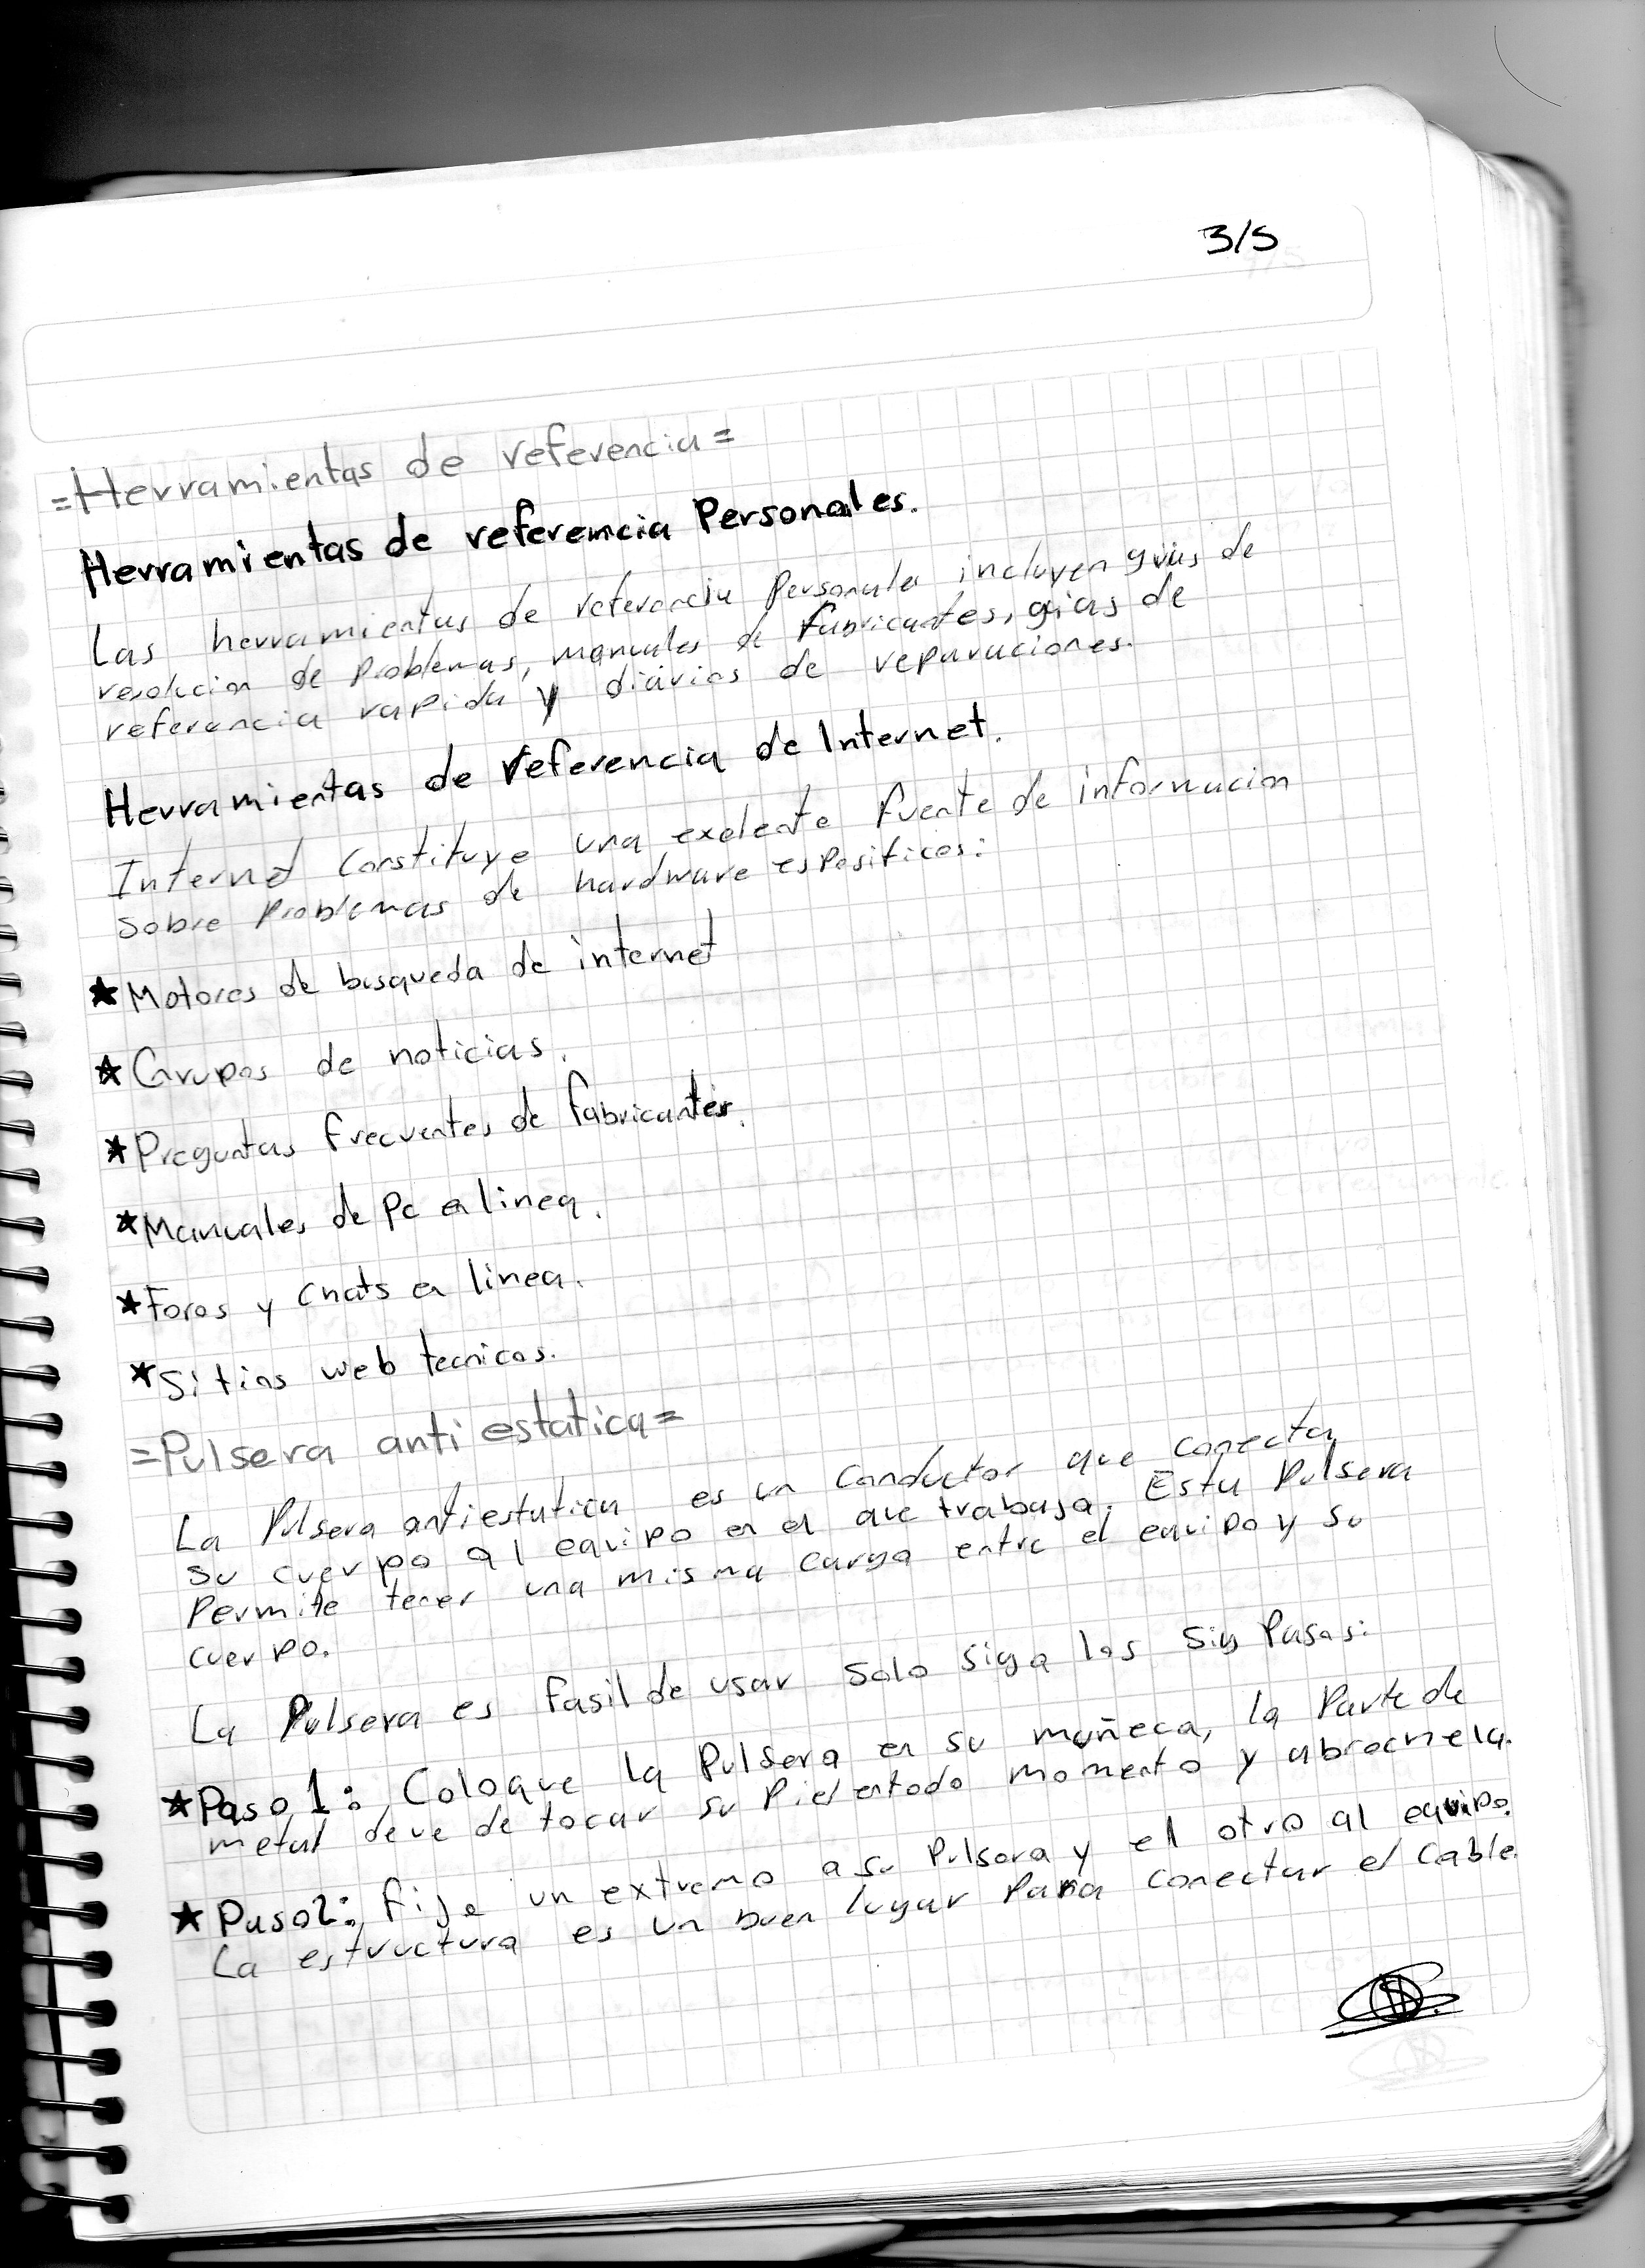 3/5
=Herramientas de referencia=
Herramientas de referencia Personales.
Las herramientas de referencia Personales incluyen guias de
resolucion de Problemas, manuales de fabricantes, guias de
referencia rapida y diarios de reparaciones.
Herramientas de referencia de Internet.
Internet Constituye una exelente fuente de informacion
Sobre Problemas de hardware espesificos:
★Motores de busqueda de internet
★Grupos de noticias.
★Preguntas frecuentes de fabricantes.
★Manuales de Pc en linea.
★Foros y Chats en linea.
★Sitios web tecnicos.
=Pulsera anti estatica=
La Pulsera antiestatica es un Conductor que conecta
su cuerpo al equipo en el que trabaja. Esta Pulsera
Permite tener una misma carga entre el equipo y su
cuerpo.
La Pulsera es fasil de usar Solo siga los Sig Pasos:
★Paso 1: Coloque la Pulsera en su muñeca, la Parte de
metal deve de tocar su Piel entodo momento y abrochela.
★Paso2: fije un extremo a su Pulsera y el otro al equipo.
La estructura es un buen lugar Para conectar el Cable.